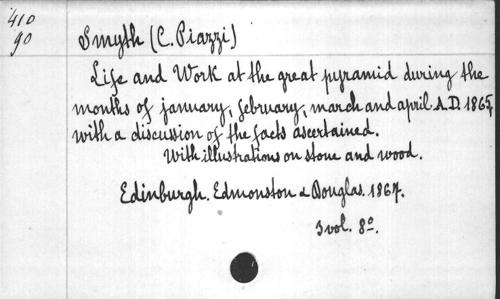 410
90
Smyth (C. Piazzi)
Life and Work at the great pyramid during the
months of january, february, march and april A.D. 1865,
with a discussion of the facts ascertained.
With illustrations on stone and wood.
Edinburgh. Edmonston & Douglas. 1867.
3 vol. 8º.